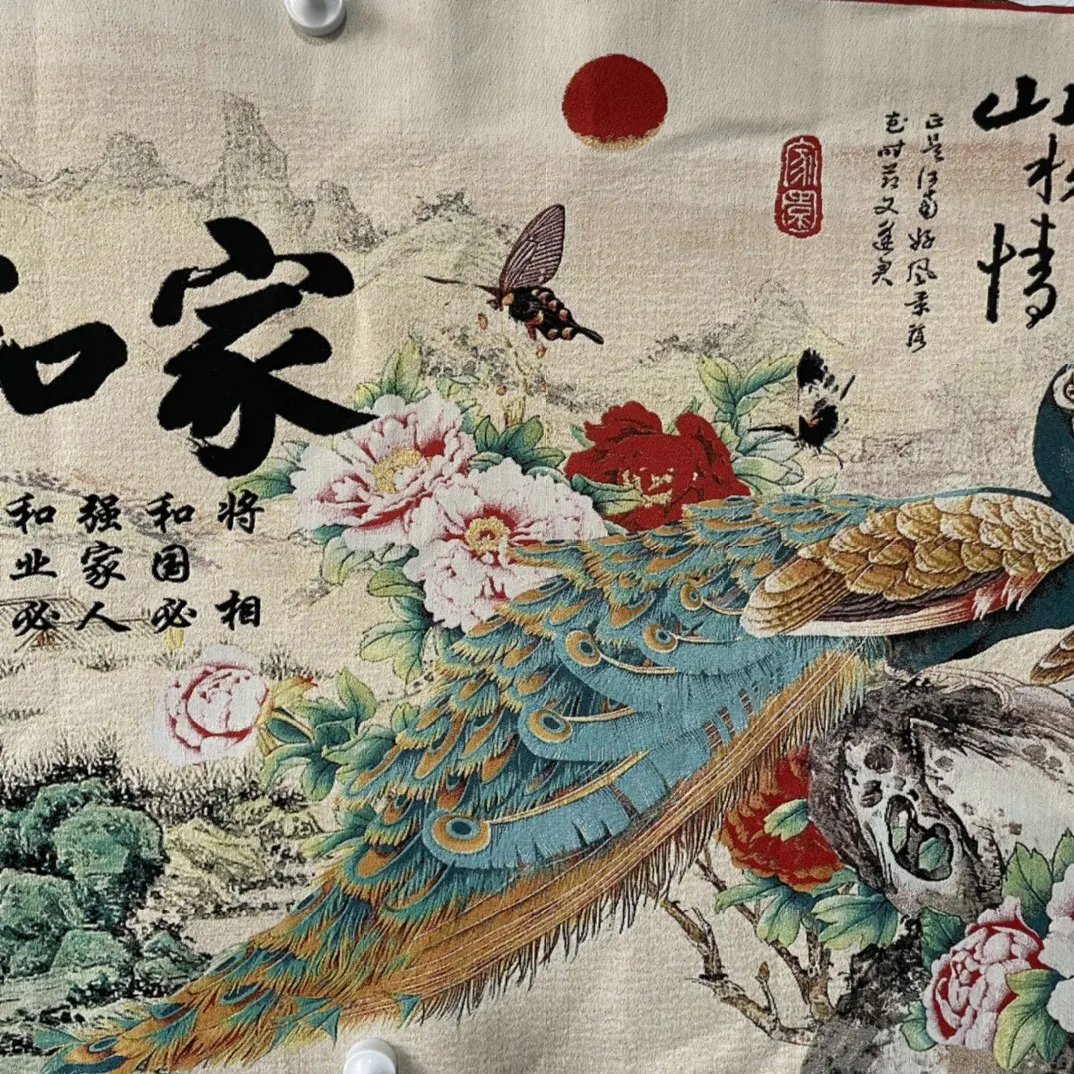 山
情
正是江南好风景落
花时节又逢君
家園
家
将相
和国必
强家人
和业必